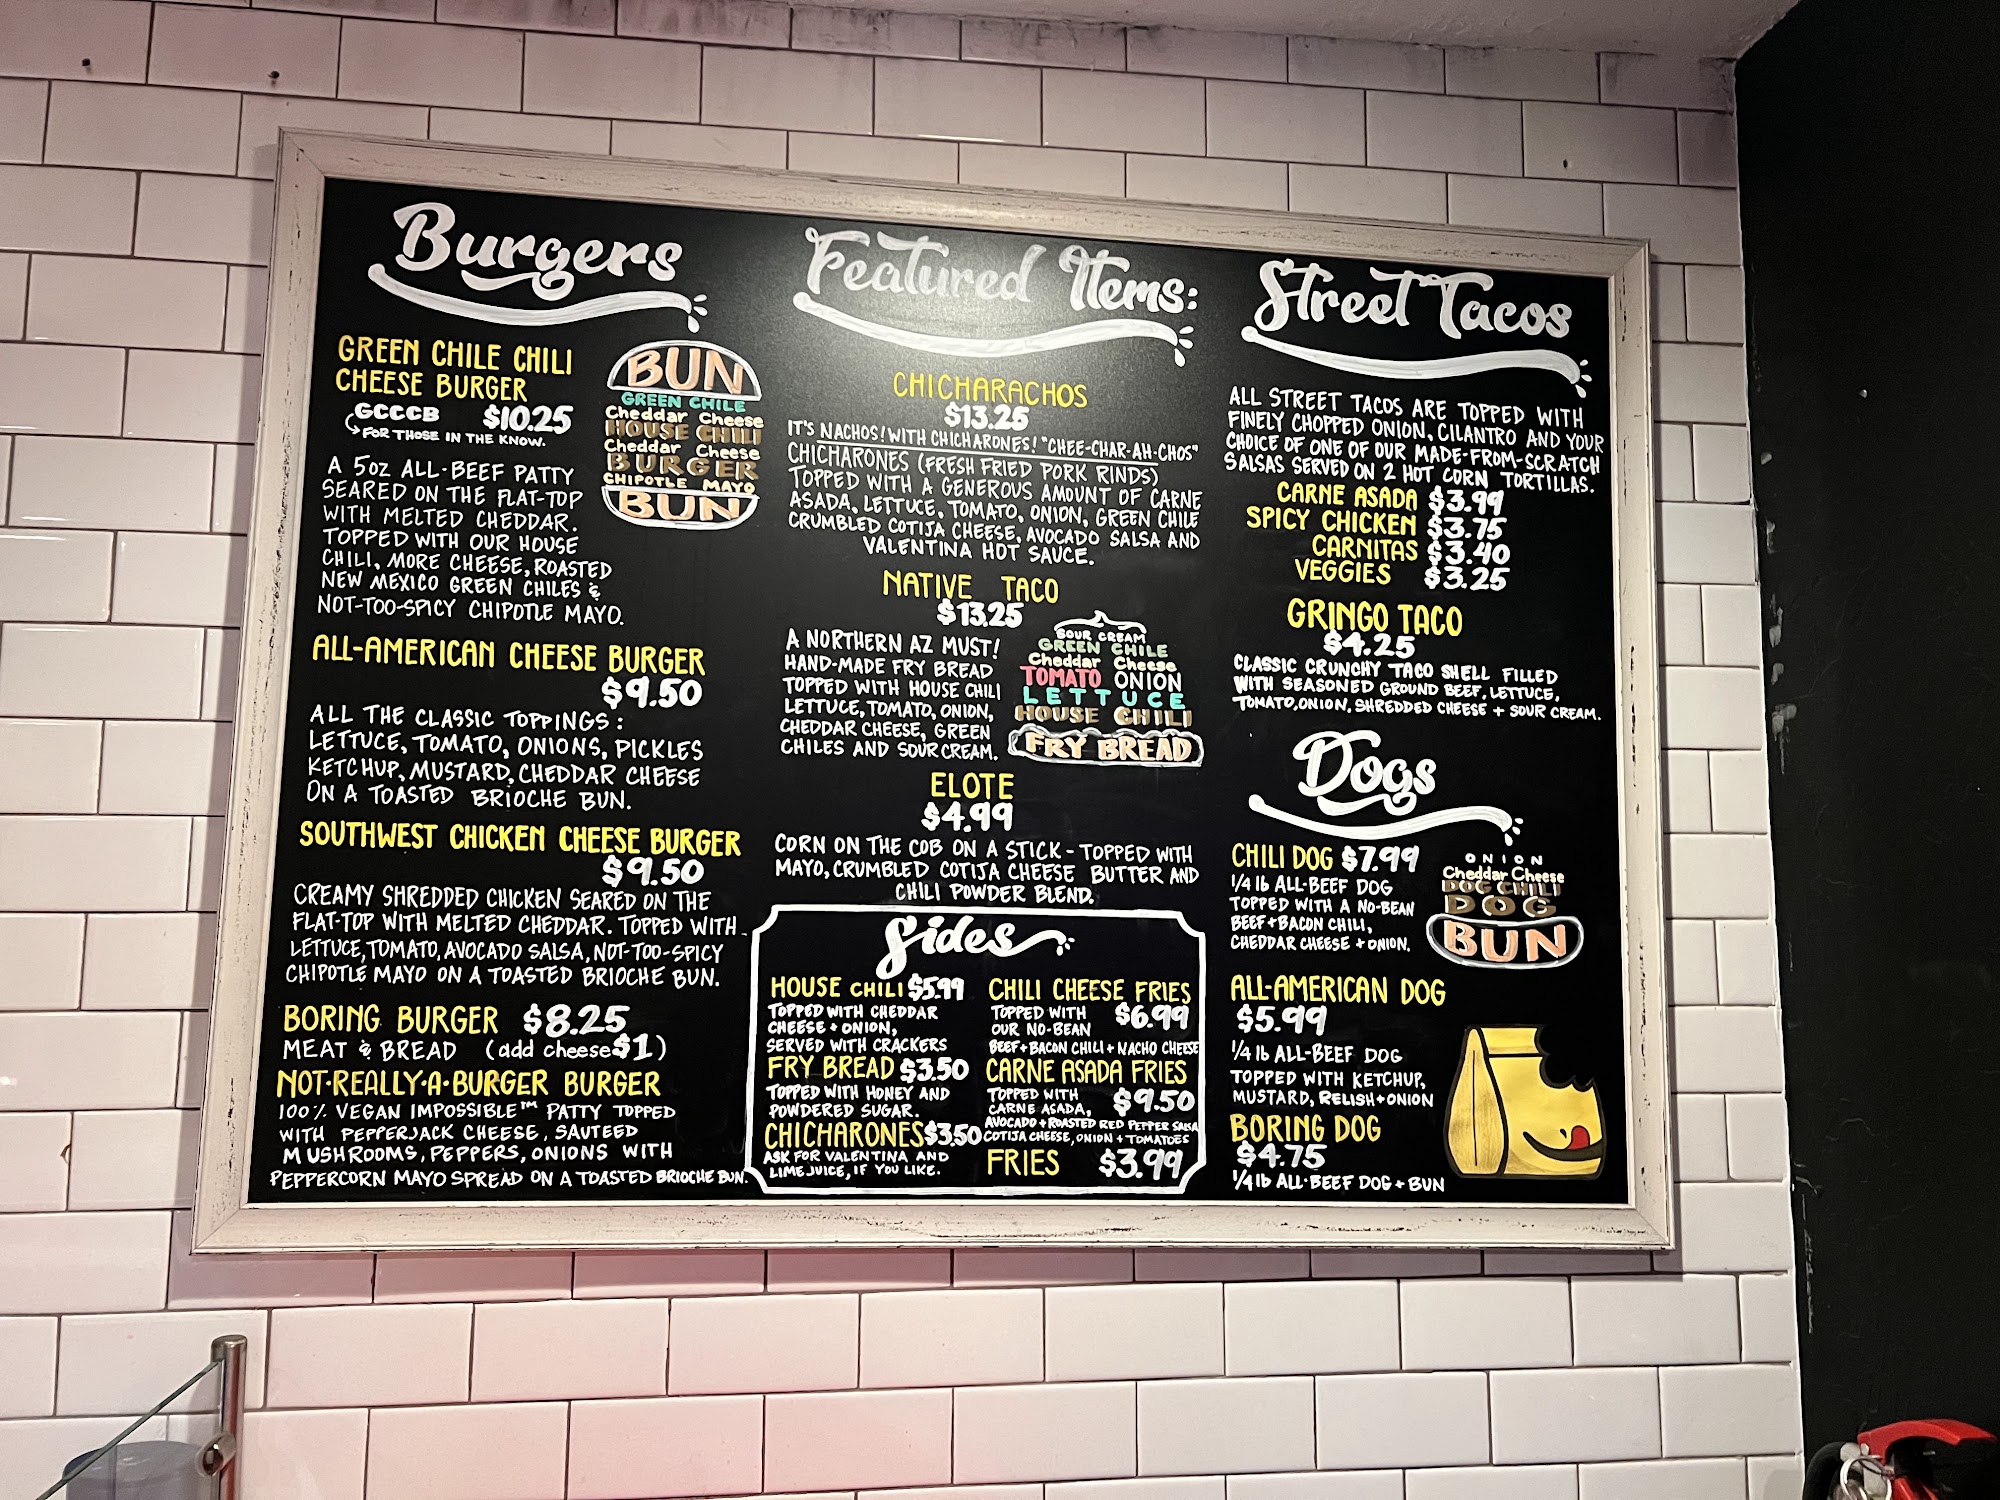 Burgers
GREEN CHILE CHILI
CHEESE BURGER
GCCCB $10.25
FOR THOSE IN THE KNOW.
A 5OZ ALL-BEEF PATTY
SEARED ON THE FLAT-TOP
WITH MELTED CHEDDAR.
TOPPED WITH OUR HOUSE
CHILI, MORE CHEESE, ROASTED
NEW MEXICO GREEN CHILES &
NOT-TOO-SPICY CHIPOTLE MAYO.
BUN
GREEN CHILE
Cheddar Cheese
HOUSE CHILI
Cheddar Cheese
BURGER
CHIPOTLE MAYO
BUN
ALL-AMERICAN CHEESE BURGER
$9.50
ALL THE CLASSIC TOPPINGS:
LETTUCE, TOMATO, ONIONS, PICKLES
KETCHUP, MUSTARD, CHEDDAR CHEESE
ON A TOASTED BRIOCHE BUN.
SOUTHWEST CHICKEN CHEESE BURGER
$9.50
CREAMY SHREDDED CHICKEN SEARED ON THE
FLAT-TOP WITH MELTED CHEDDAR. TOPPED WITH
LETTUCE, TOMATO, AVOCADO SALSA, NOT-TOO-SPICY
CHIPOTLE MAYO ON A TOASTED BRIOCHE BUN.
BORING BURGER $8.25
MEAT & BREAD (add cheese $1)
NOT-REALLY-A-BURGER BURGER
100% VEGAN IMPOSSIBLE™ PATTY TOPPED
WITH PEPPERJACK CHEESE, SAUTEED
MUSHROOMS, PEPPERS, ONIONS WITH
PEPPERCORN MAYO SPREAD ON A TOASTED BRIOCHE BUN.
Featured Items:
CHICHARACHOS
$13.25
IT'S NACHOS! WITH CHICHARONES! "CHEE-CHAR-AH-CHOS"
CHICHARONES (FRESH FRIED PORK RINDS)
TOPPED WITH A GENEROUS AMOUNT OF CARNE
ASADA, LETTUCE, TOMATO, ONION, GREEN CHILE
CRUMBLED COTIJA CHEESE, AVOCADO SALSA AND
VALENTINA HOT SAUCE.
NATIVE TACO
$13.25
A NORTHERN AZ MUST!
HAND-MADE FRY BREAD
TOPPED WITH HOUSE CHILI
LETTUCE, TOMATO, ONION,
CHEDDAR CHEESE, GREEN
CHILES AND SOUR CREAM.
SOUR CREAM
GREEN CHILE
Cheddar Cheese
TOMATO ONION
LETTUCE
HOUSE CHILI
FRY BREAD
ELOTE
$4.99
CORN ON THE COB ON A STICK - TOPPED WITH
MAYO, CRUMBLED COTIJA CHEESE BUTTER AND
CHILI POWDER BLEND.
Sides
HOUSE CHILI $5.99
TOPPED WITH CHEDDAR
CHEESE + ONION,
SERVED WITH CRACKERS
FRY BREAD $3.50
TOPPED WITH HONEY AND
POWDERED SUGAR.
CHICHARONES $3.50
ASK FOR VALENTINA AND
LIME JUICE, IF YOU LIKE.
CHILI CHEESE FRIES
TOPPED WITH $6.99
OUR NO-BEAN
BEEF+BACON CHILI + NACHO CHEESE
CARNE ASADA FRIES
TOPPED WITH $9.50
CARNE ASADA,
AVOCADO + ROASTED RED PEPPER SALSA
COTIJA CHEESE, ONION + TOMATOES
FRIES $3.99
Street Tacos
ALL STREET TACOS ARE TOPPED WITH
FINELY CHOPPED ONION, CILANTRO AND YOUR
CHOICE OF ONE OF OUR MADE-FROM-SCRATCH
SALSAS SERVED ON 2 HOT CORN TORTILLAS.
CARNE ASADA $3.99
SPICY CHICKEN $3.75
CARNITAS $3.40
VEGGIES $3.25
GRINGO TACO
$4.25
CLASSIC CRUNCHY TACO SHELL FILLED
WITH SEASONED GROUND BEEF, LETTUCE,
TOMATO, ONION, SHREDDED CHEESE + SOUR CREAM.
Dogs
CHILI DOG $7.99
1/4 lb ALL-BEEF DOG
TOPPED WITH A NO-BEAN
BEEF+BACON CHILI,
CHEDDAR CHEESE + ONION.
ONION
Cheddar Cheese
DOG CHILI
DOG
BUN
ALL-AMERICAN DOG
$5.99
1/4 lb ALL-BEEF DOG
TOPPED WITH KETCHUP,
MUSTARD, RELISH + ONION
BORING DOG
$4.75
1/4 lb ALL-BEEF DOG + BUN